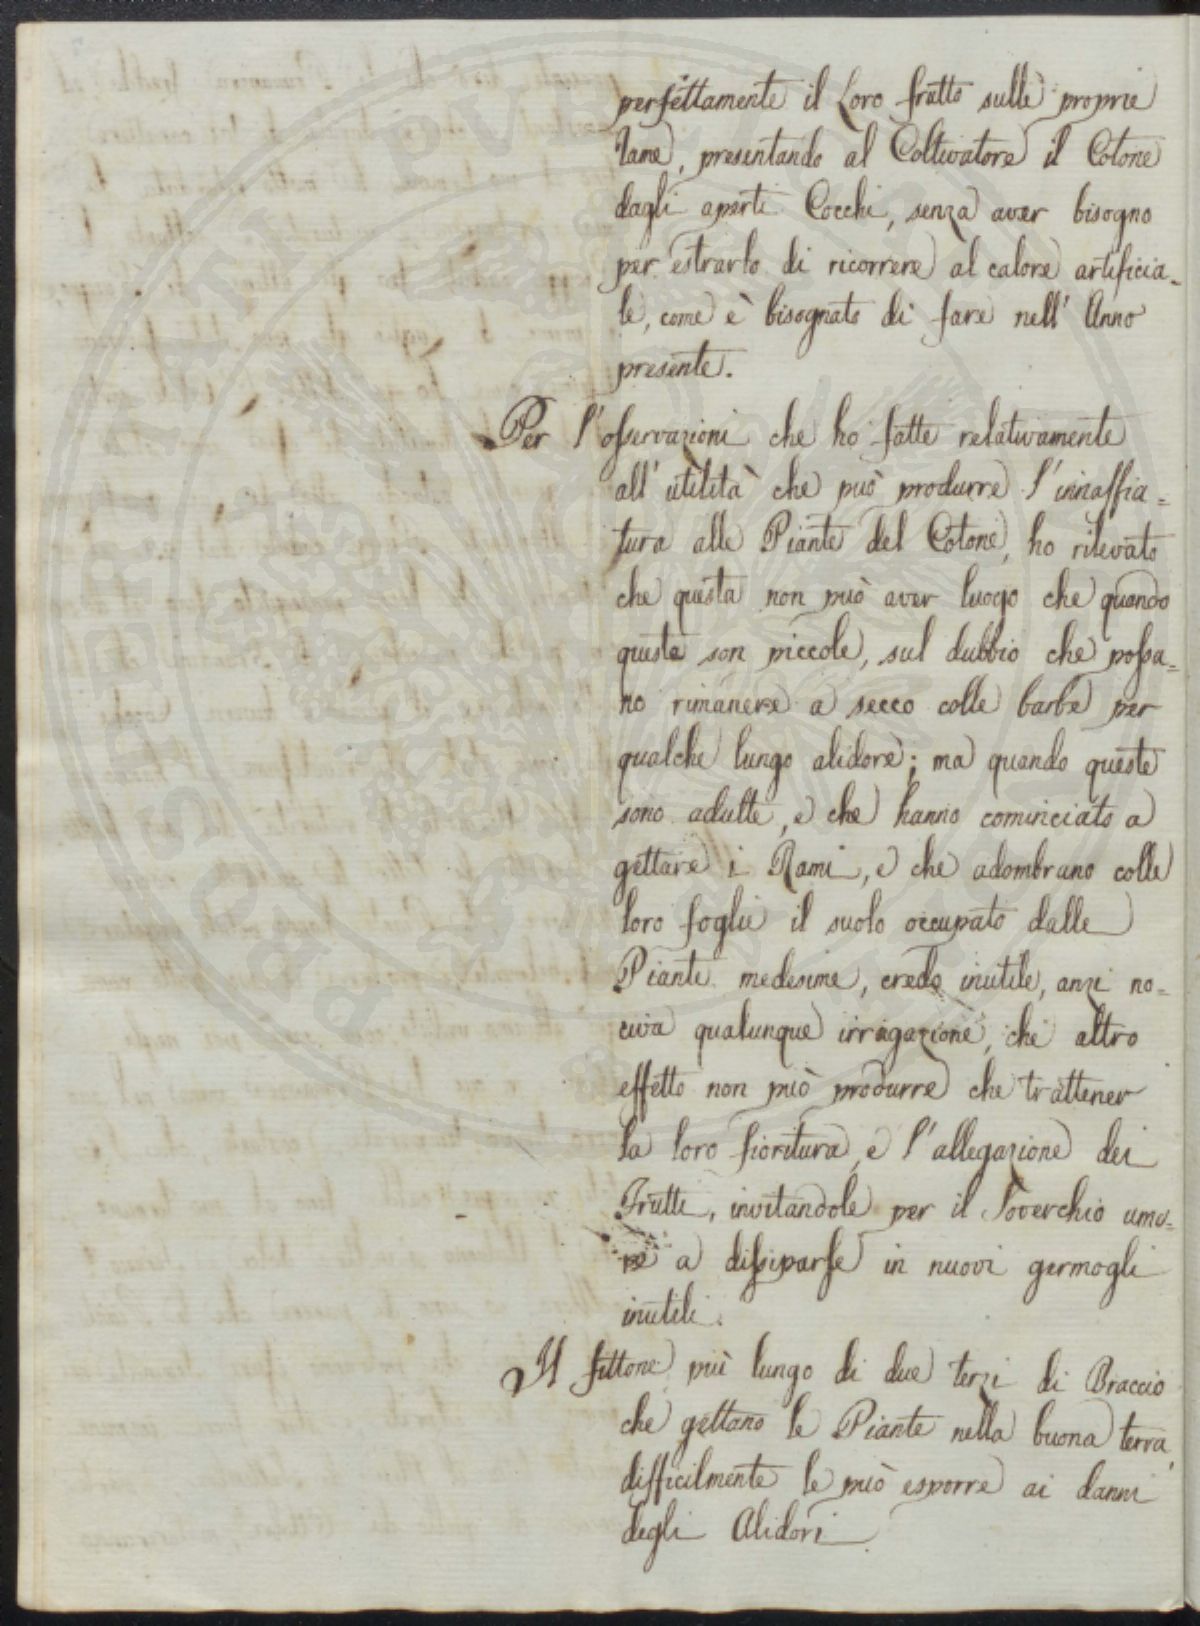 perfettamente il Loro frutto sulle proprie
Rame, presentando al Coltivatore il Cotone
dagli aperti Cocchi, senza aver bisogno
per estrarlo di ricorrere al calore artificia=
le, come è bisognato di fare nell' Anno
presente.
Per l'osservazioni che ho fatte relativamente
all' utilità che può produrre l'innaffia=
tura alle Piante del Cotone, ho rilevato
che questa non può aver luogo che quando
queste son piccole, sul dubbio che possa=
no rimanere a secco colle barbe per
qualche lungo alidore; ma quando queste
sono adulte, e che hanno cominciato a
gettare i Rami, e che adombrano colle
loro foglie il suolo occupato dalle
Piante medesime, credo inutile, anzi no=
civa qualunque irrigazione, che altro
effetto non può produrre che trattener
la loro fioritura, e l'allegazione dei
Frutti, invitandole per il Soverchio umo=
re a dissiparse in nuovi germogli
inutili.
Il fittone più lungo di due terzi di Braccio
che gettano le Piante nella buona terra,
difficilmente le può esporre ai danni
degli Alidori.
PROSPERITATI PUBLICAE